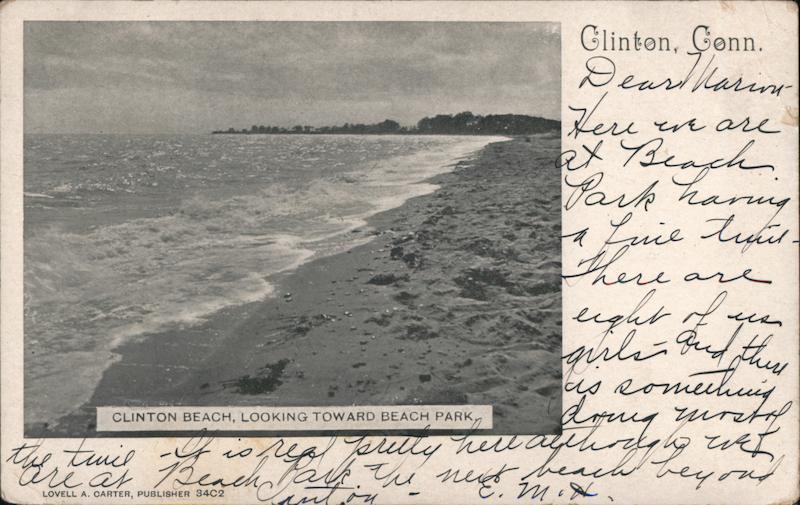 Clinton, Conn.
Dear Marion -
Here we are
at Beach
Park having
a fine time -
There are
eight of us
girls - and there
is something
doing most of
the time - It is real pretty here although we
are at Beach Park the next beach beyond
Clinton - E. M. H.
CLINTON BEACH, LOOKING TOWARD BEACH PARK.
LOVELL A. CARTER, PUBLISHER 34C2